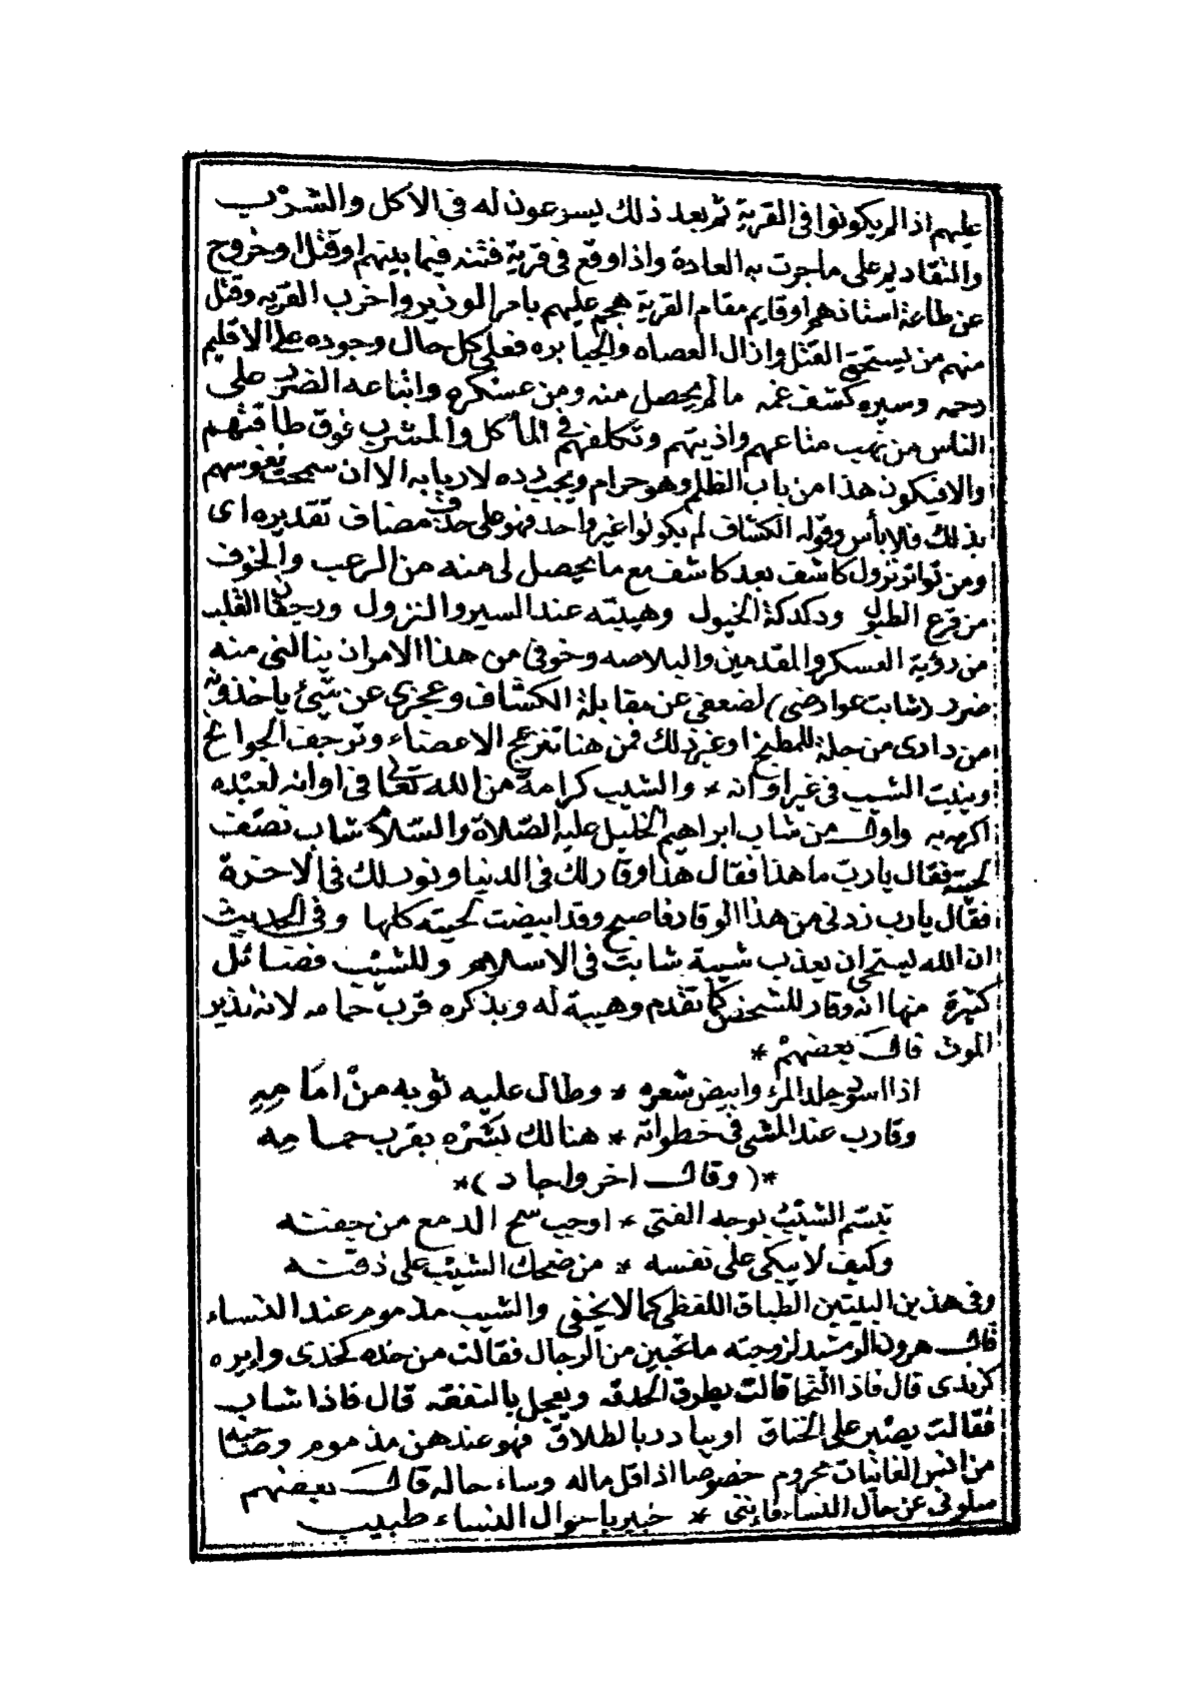 عليهم اذا لم يكونوا في القرية ثم بعد ذلك يسرعون له في الاكل والشرب
والتقادير على ما جرت به العادة واذا وقع في قرية فتنه فيما بينهم او قتل او خروج
عن طاعة استاذهم او قايم مقام القرية هجم عليهم بامر الوزير واخرب القريه وقتل
منهم من يستحق القتل وازال العصاه والجبابره فعلى كل حال وجوده على الاقليم
رحمه وسيره كشف غمه ما لم يحصل منه ومن عسكره واتباعه الضرب على
الناس من نهب متاعهم واذيتهم وتكلفهم في المأكل والمشرب فوق طاقتهم
والا فيكون هذا من باب الظلم وهو حرام ويجب رده لاربابه الا ان سمحت نفوسهم
بذلك فلا بأس وقوله الكشاف لم يكونوا غير واحد فهو على حذف مضاف تقديره اى
ومن تواتر نزول كاشف بعد كاشف مع ما يحصل لى منه من الرعب والخوف
من قرع الطبول ودكدكة الخيول وهيبته عند السير والنزول ورجفان القلب
من رؤية العسكر والمقدمين والبلاصه وخوفى من هذا الامر ان ينالنى منه
ضرر (شابت عوارضى) لضعفى عن مقابلة الكشاف وعجزى عن شئ ياخذونه
من دارى من جلة للمطبخ او غير ذلك فمن هنا تنزعج الاعضاء وترجف الجوانح
وينبت الشيب في غير اوانه * والشيب كرامة من الله تعالى في اوانه لعبده
اكرمه به واول من شاب ابراهيم الخليل عليه الصلاة والسلام شاب نصف
لحيته فقال يا رب ما هذا فقال هذا وقار لك في الدنيا ونور لك في الاخرة
فقال يا رب زدنى من هذا الوقار فاصبح وقد ابيضت لحيته كلها وفي الحديث
ان الله ليستحى ان يعذب شيبة شابت في الاسلام وللشيب فضائل
كثيرة منها انه وقار للشخص كما تقدم وهيبة له ويذكره قرب حمامه لانه نذير
الموت قال بعضهم *
اذا اسود جلد المرء وابيض شعره * وطال عليه ثوبه من امامه
وقارب عند المشى في خطواته * هنالك بشره بقرب حمامه
*( وقال اخر واجاد )*
تبسم الشيب بوجه الفتى * اوجب سح الدمع من جفنه
وكيف لا يبكى على نفسه * من ضحك الشيب على ذقنه
وفي هذين البيتين الطباق اللفظى كما لا يخفى والشيب مذموم عند النساء
قال هرون الرشيد لزوجته ما تحبين من الرجال فقالت من خده كخدى وايره
كزندى قال فاذا التحا قالت يطرق الحدقه ويعجل بالنفقه قال فاذا شاب
فقالت يصبر على الخناق او يبادر بالطلاق فهو عندهن مذموم وصاحبه
من انس الغانيات محروم خصوصا اذا قل ماله وساء حاله قال بعضهم
سلونى عن حال النساء فاننى * خبير باحوال النساء طبيب